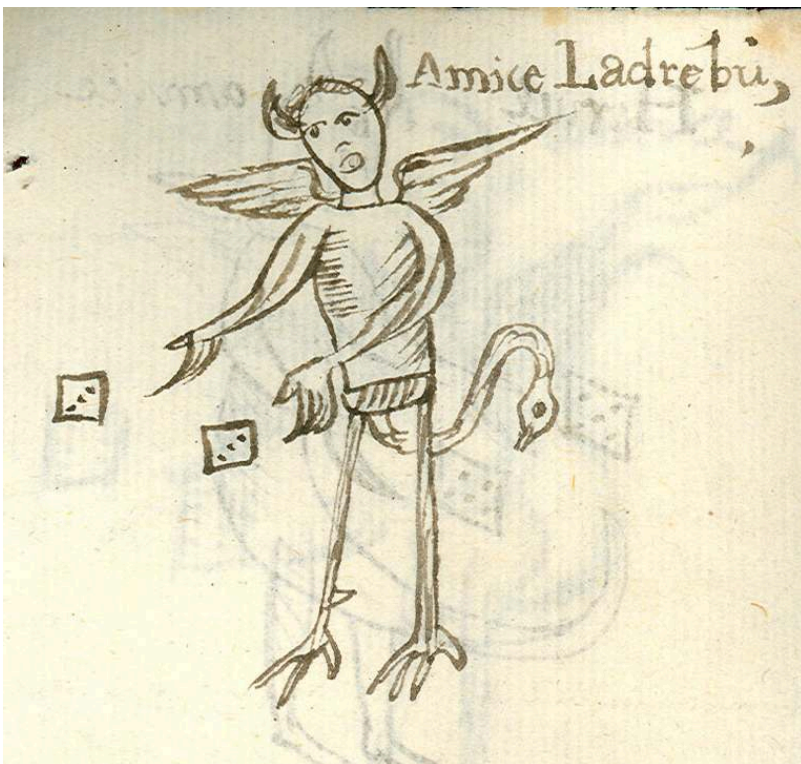 Amice Ladrebù,